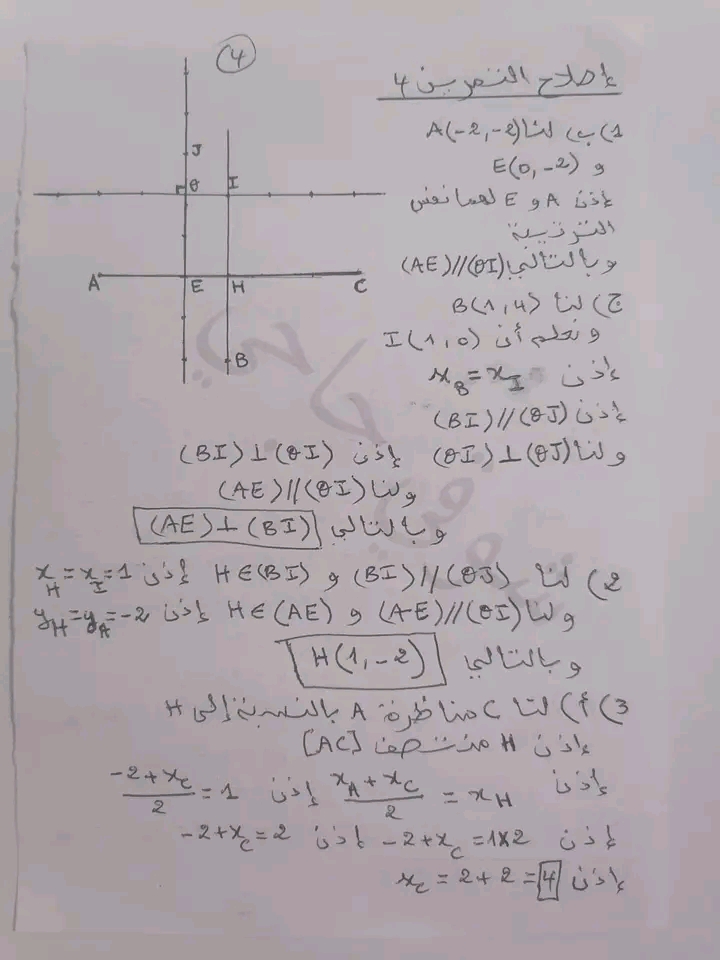 4
إصلاح التمرين 4
J
θ I
A E H C
B
1) ب) لنا A(-2,-2)
و E(0,-2)
إذن A و E لهما نفس
الترتيبة
وبالتالي (AE)//(θI)
ج) لنا B(1,4)
ونعلم أن I(1,0)
إذن x_B = x_I
إذن (BI)//(θJ)
ولنا (θI)⊥(θJ) إذن (BI)⊥(θI)
ولنا (AE)//(θI)
وبالتالي (AE)⊥(BI)
2) لنا (BI)//(θJ) و H∈(BI) إذن x_H = x_I = 1
ولنا (AE)//(θI) و H∈(AE) إذن y_H = y_A = -2
وبالتالي H(1,-2)
3) أ) لنا C مناظرة A بالنسبة إلى H
إذن H منتصف [AC]
إذن (x_A + x_C)/2 = x_H إذن (-2+x_C)/2 = 1
إذن -2+x_C = 1×2 إذن -2+x_C = 2
إذن x_C = 2+2 = 4